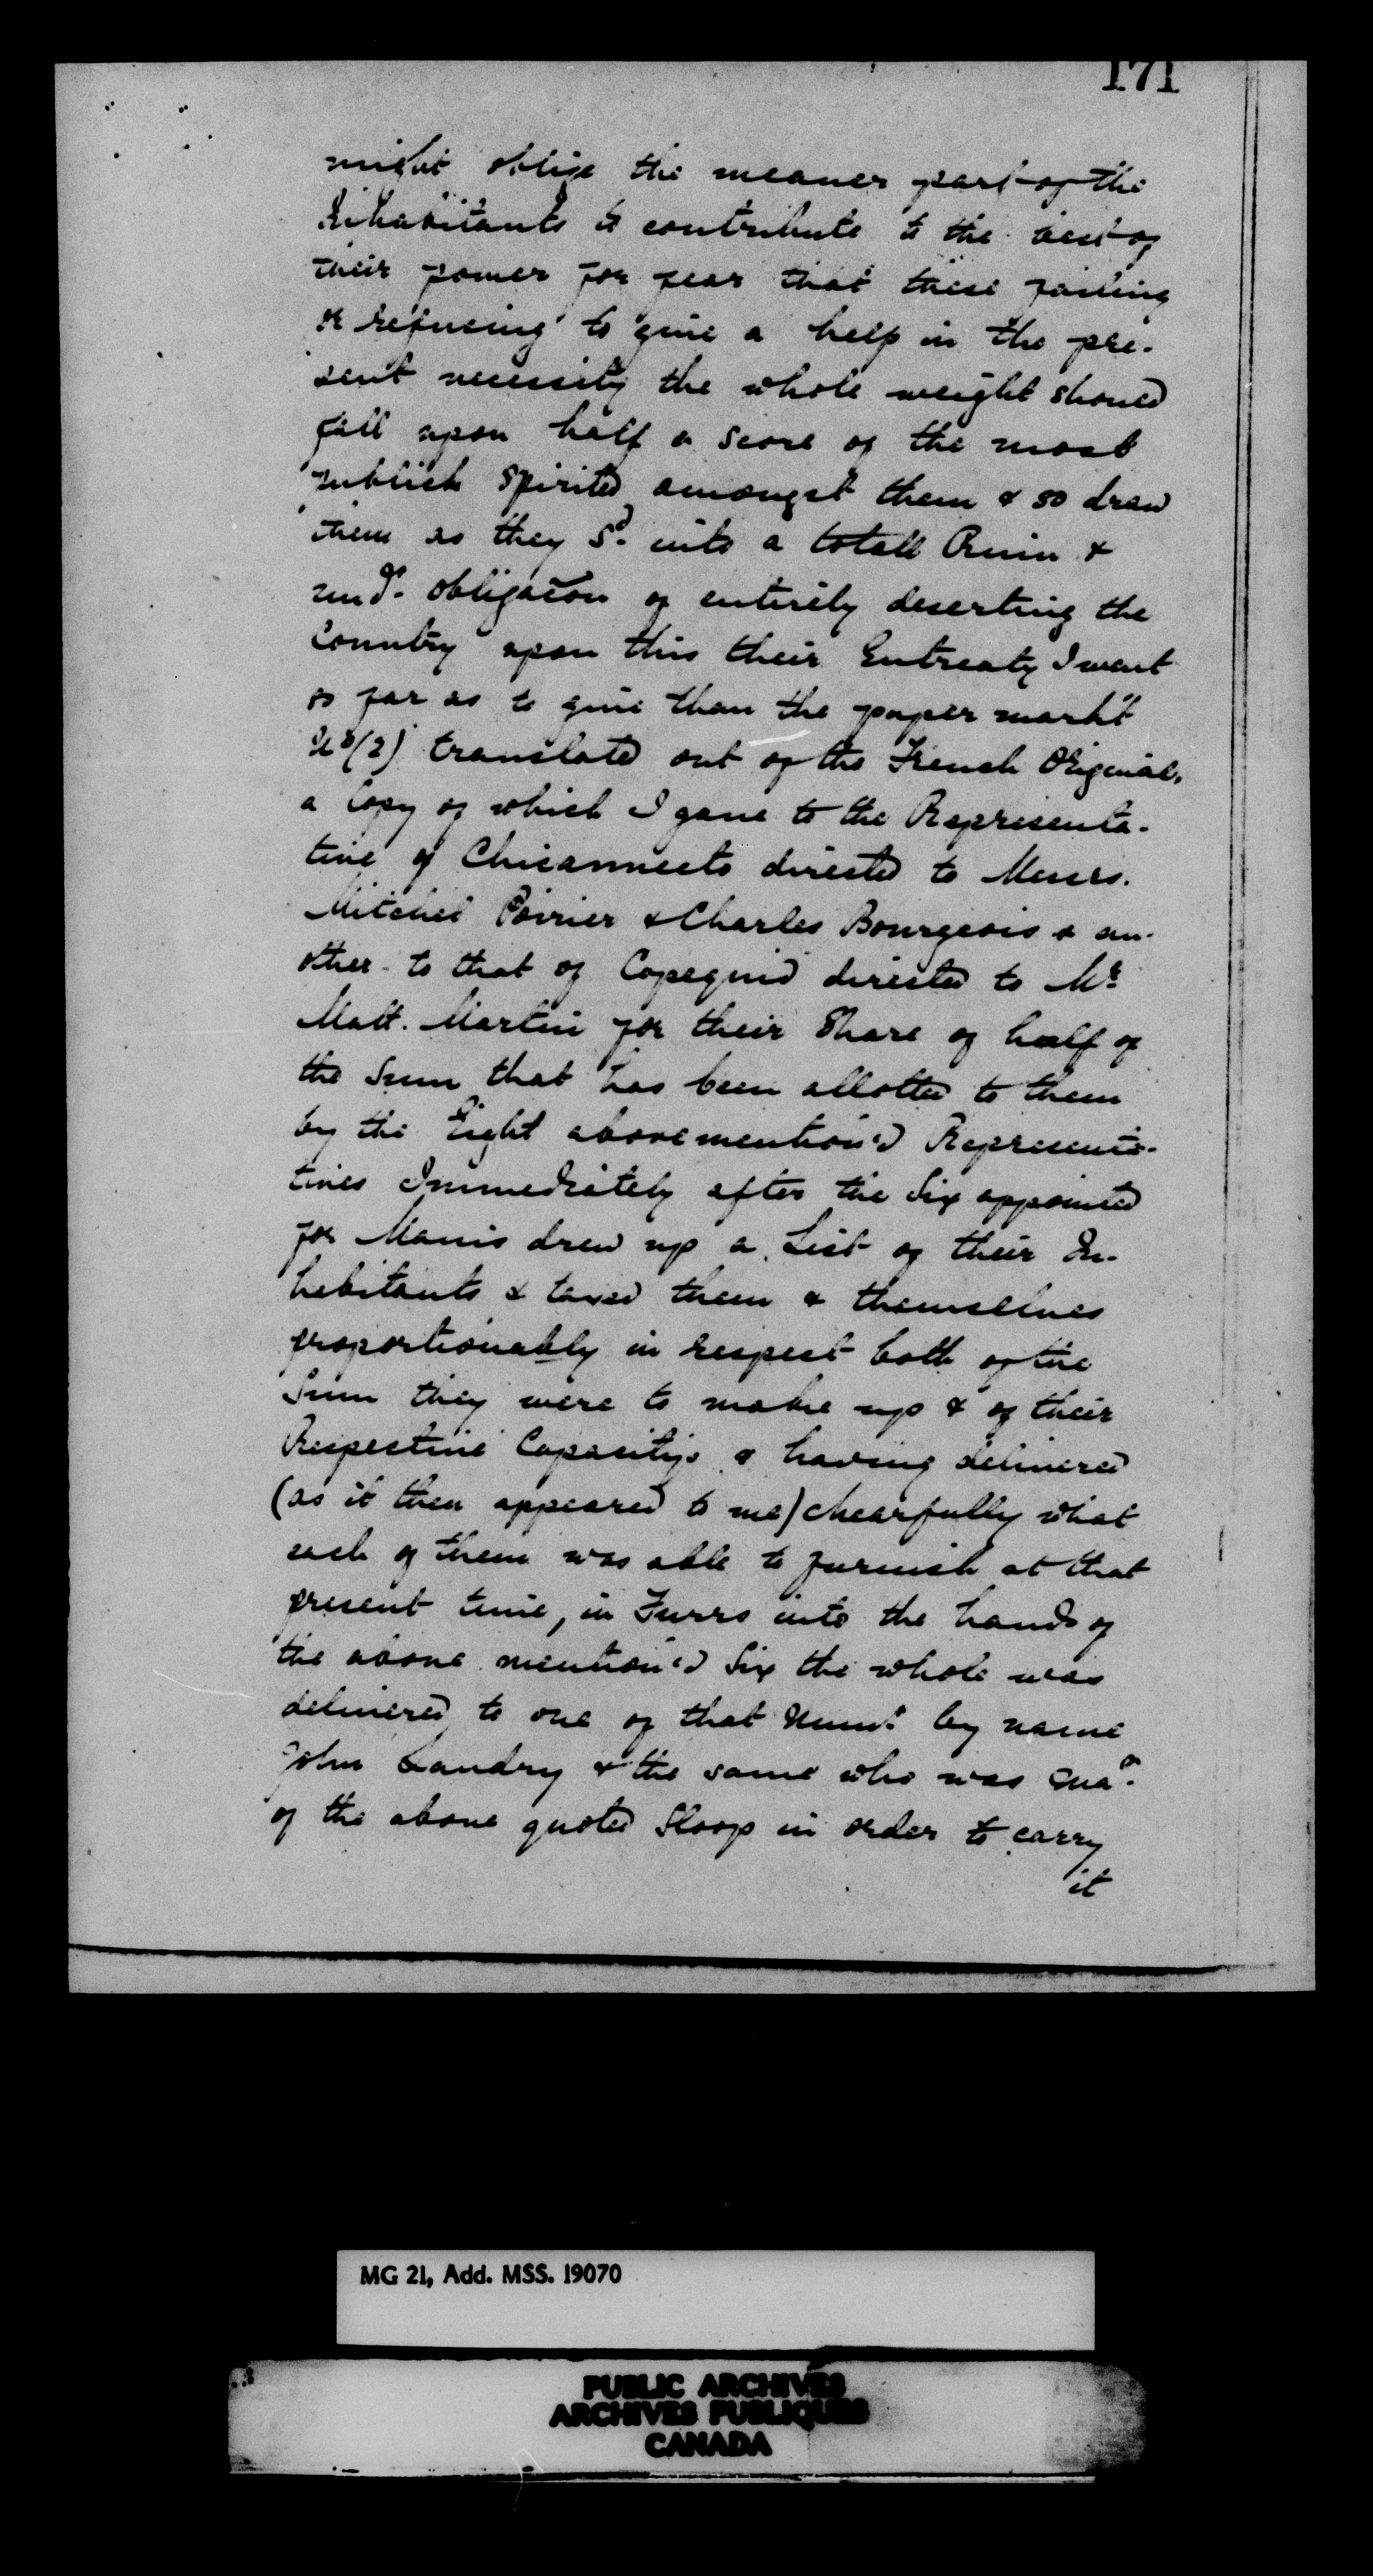 171
might oblige the meaner part of the
Inhabitants to contribute to the best of
their power for fear that these failing
or refusing to give a help in the pre-
sent necessity the whole weight should
fall upon half a score of the most
publick spirited amongst them & so draw
them as they Sd. into a totall Ruin &
undr. obligation of entirely deserting the
Country upon this their Entreaty I went
so far as to give them the paper markt
No (2) translated out of the French Original,
a Copy of which I gave to the Representa-
tive of Chicannecto directed to Messrs.
Mitchel Poirier & Charles Bourgeois & an-
other to that of Copequid directed to Mr.
Matt. Martin for their Share of half of
the Sum that has been allotted to them
by the Eight abovemention'd Representa-
tives Immediately after the Six appointed
for Manis drew up a List of their In-
habitants & taxed them & themselves
proportionably in respect both of the
Sum they were to make up & of their
Respective Capacitys & having delivered
(as it then appeared to me) chearfully what
each of them was able to furnish at that
present time, in Furrs into the hands of
the above mention'd Six the whole was
delivered to one of that Numr. by name
John Landry & the same who was
of the above quoted Sloop in order to carry
it
MG 21, Add. MSS. 19070
PUBLIC ARCHIVES
ARCHIVES PUBLIQUES
CANADA